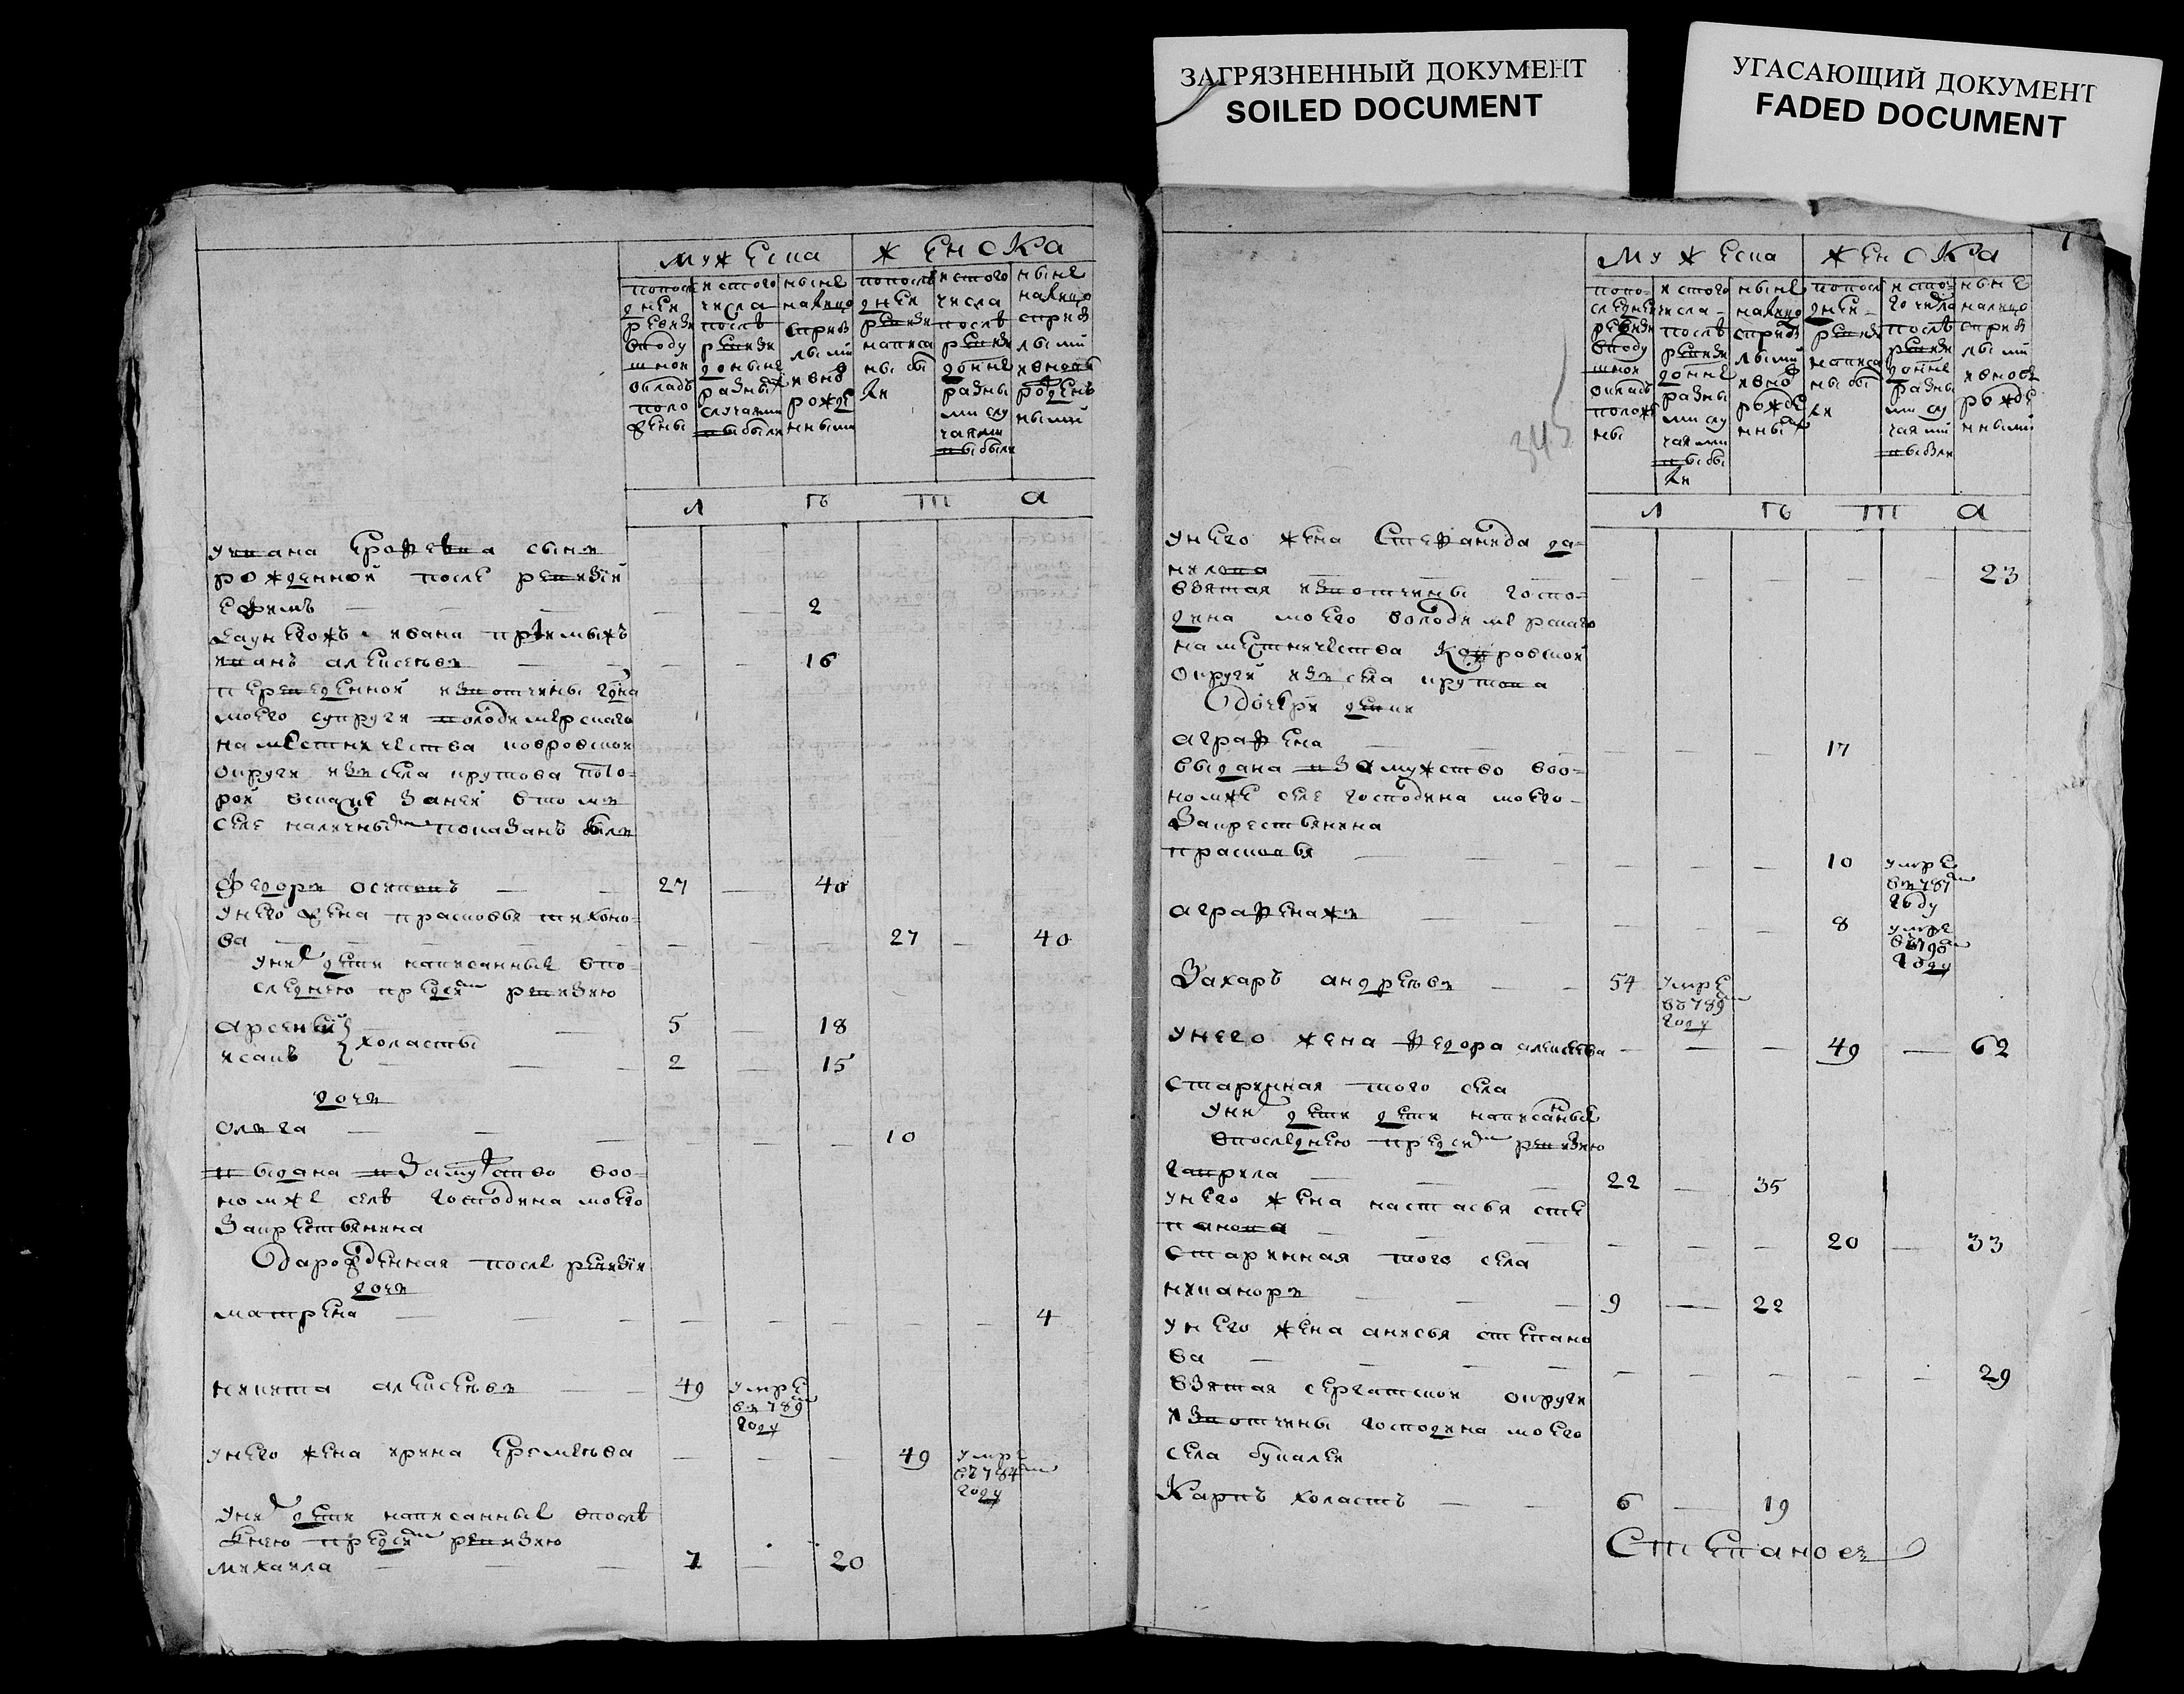 ЗАГРЯЗНЕННЫЙ ДОКУМЕНТ
SOILED DOCUMENT
УГАСАЮЩИЙ ДОКУМЕНТ
FADED DOCUMENT
мужеска женска
по последней ревизии в подушной оклад положены
ис того числа после ревизии доныне разными случаями выбыли
ныне на лицо с прибылыми и вновь рожденными
по последней ревизии написаны были
ис того числа после ревизии до ныне разными случаями выбыли
ныне на лицо с прибылыми и вновь рожденными
л ѣ т а
у ивана ерофеева сынъ
рожденной после ревизии
ефимъ — — — — — 2
иванъ алексеевъ — — — — 16
переведенной изъ отчины гдна
моего супруги володимерскаго
наместничества ковровской
округи изъ села крутова кото-
рой в скаске за ней в томъ
селе наличнымъ показанъ былъ
Федоръ осиповъ — — 27 — 40
у него жена прасковья тихоно-
ва — — — — — 27 — 40
у них дети написанные в по-
следнюю пред сим ревизию
арсеней } холосты — 5 — 18
исакъ — — 2 — 15
дочь
ольга — — — — — — 10
выдана в замужство в оо-
номже селе господина моего
за крестьянина
Да рожденная после ревизии
дочь
матрена — — — — — — — — 4
никита алексеевъ — — 49 умре въ 789м году
у него жена ирина еремеева — — — 49 умре въ 784м году
у них дети написанные в после
днюю пред сим ревизию
михаила — — 7 — 20
345
1
мужеска женска
по последней ревизии в подушной оклад положены
ис того числа после ревизии доныне разными случаями выбыли
ныне на лицо с прибылыми и вновь рожденными
по последней ревизии написаны были
ис того числа после ревизии доныне разными случаями выбыли
ныне на лицо с прибылыми и вновь рожденными
л ѣ т а
у него жена Стефанида да-
нилова — — — — — — — 23
взятая изъ отчины госпо-
дина моего володимерскаго
наместничества Ковровской
округи изъ села крутова
аграфена — — — — — — 17
выдана в замужство в оо-
номже селе господина моего
за крестьянина
прасковья — — — — — — 10 умре въ 787м году
аграфенажъ — — — — — 8 умре въ 790м году
Захаръ андреевъ — — 54 умре въ 789м году
у него жена федора алексеева — — — 49 — 62
старинная того села
у них дети дети написанные
в последнюю пред сим ревизию
гаврила — — — 22 — 35
у него жена настасья сте
панова — — — — — — 20 — 33
старинная того села
никаноръ — — — 9 — 22
у него жена анисья степано
ва — — — — — — — — 29
взятая сергатской округи
изъ отчины господина моего
села
Карпъ холостъ — — 6 — 19
Степановъ